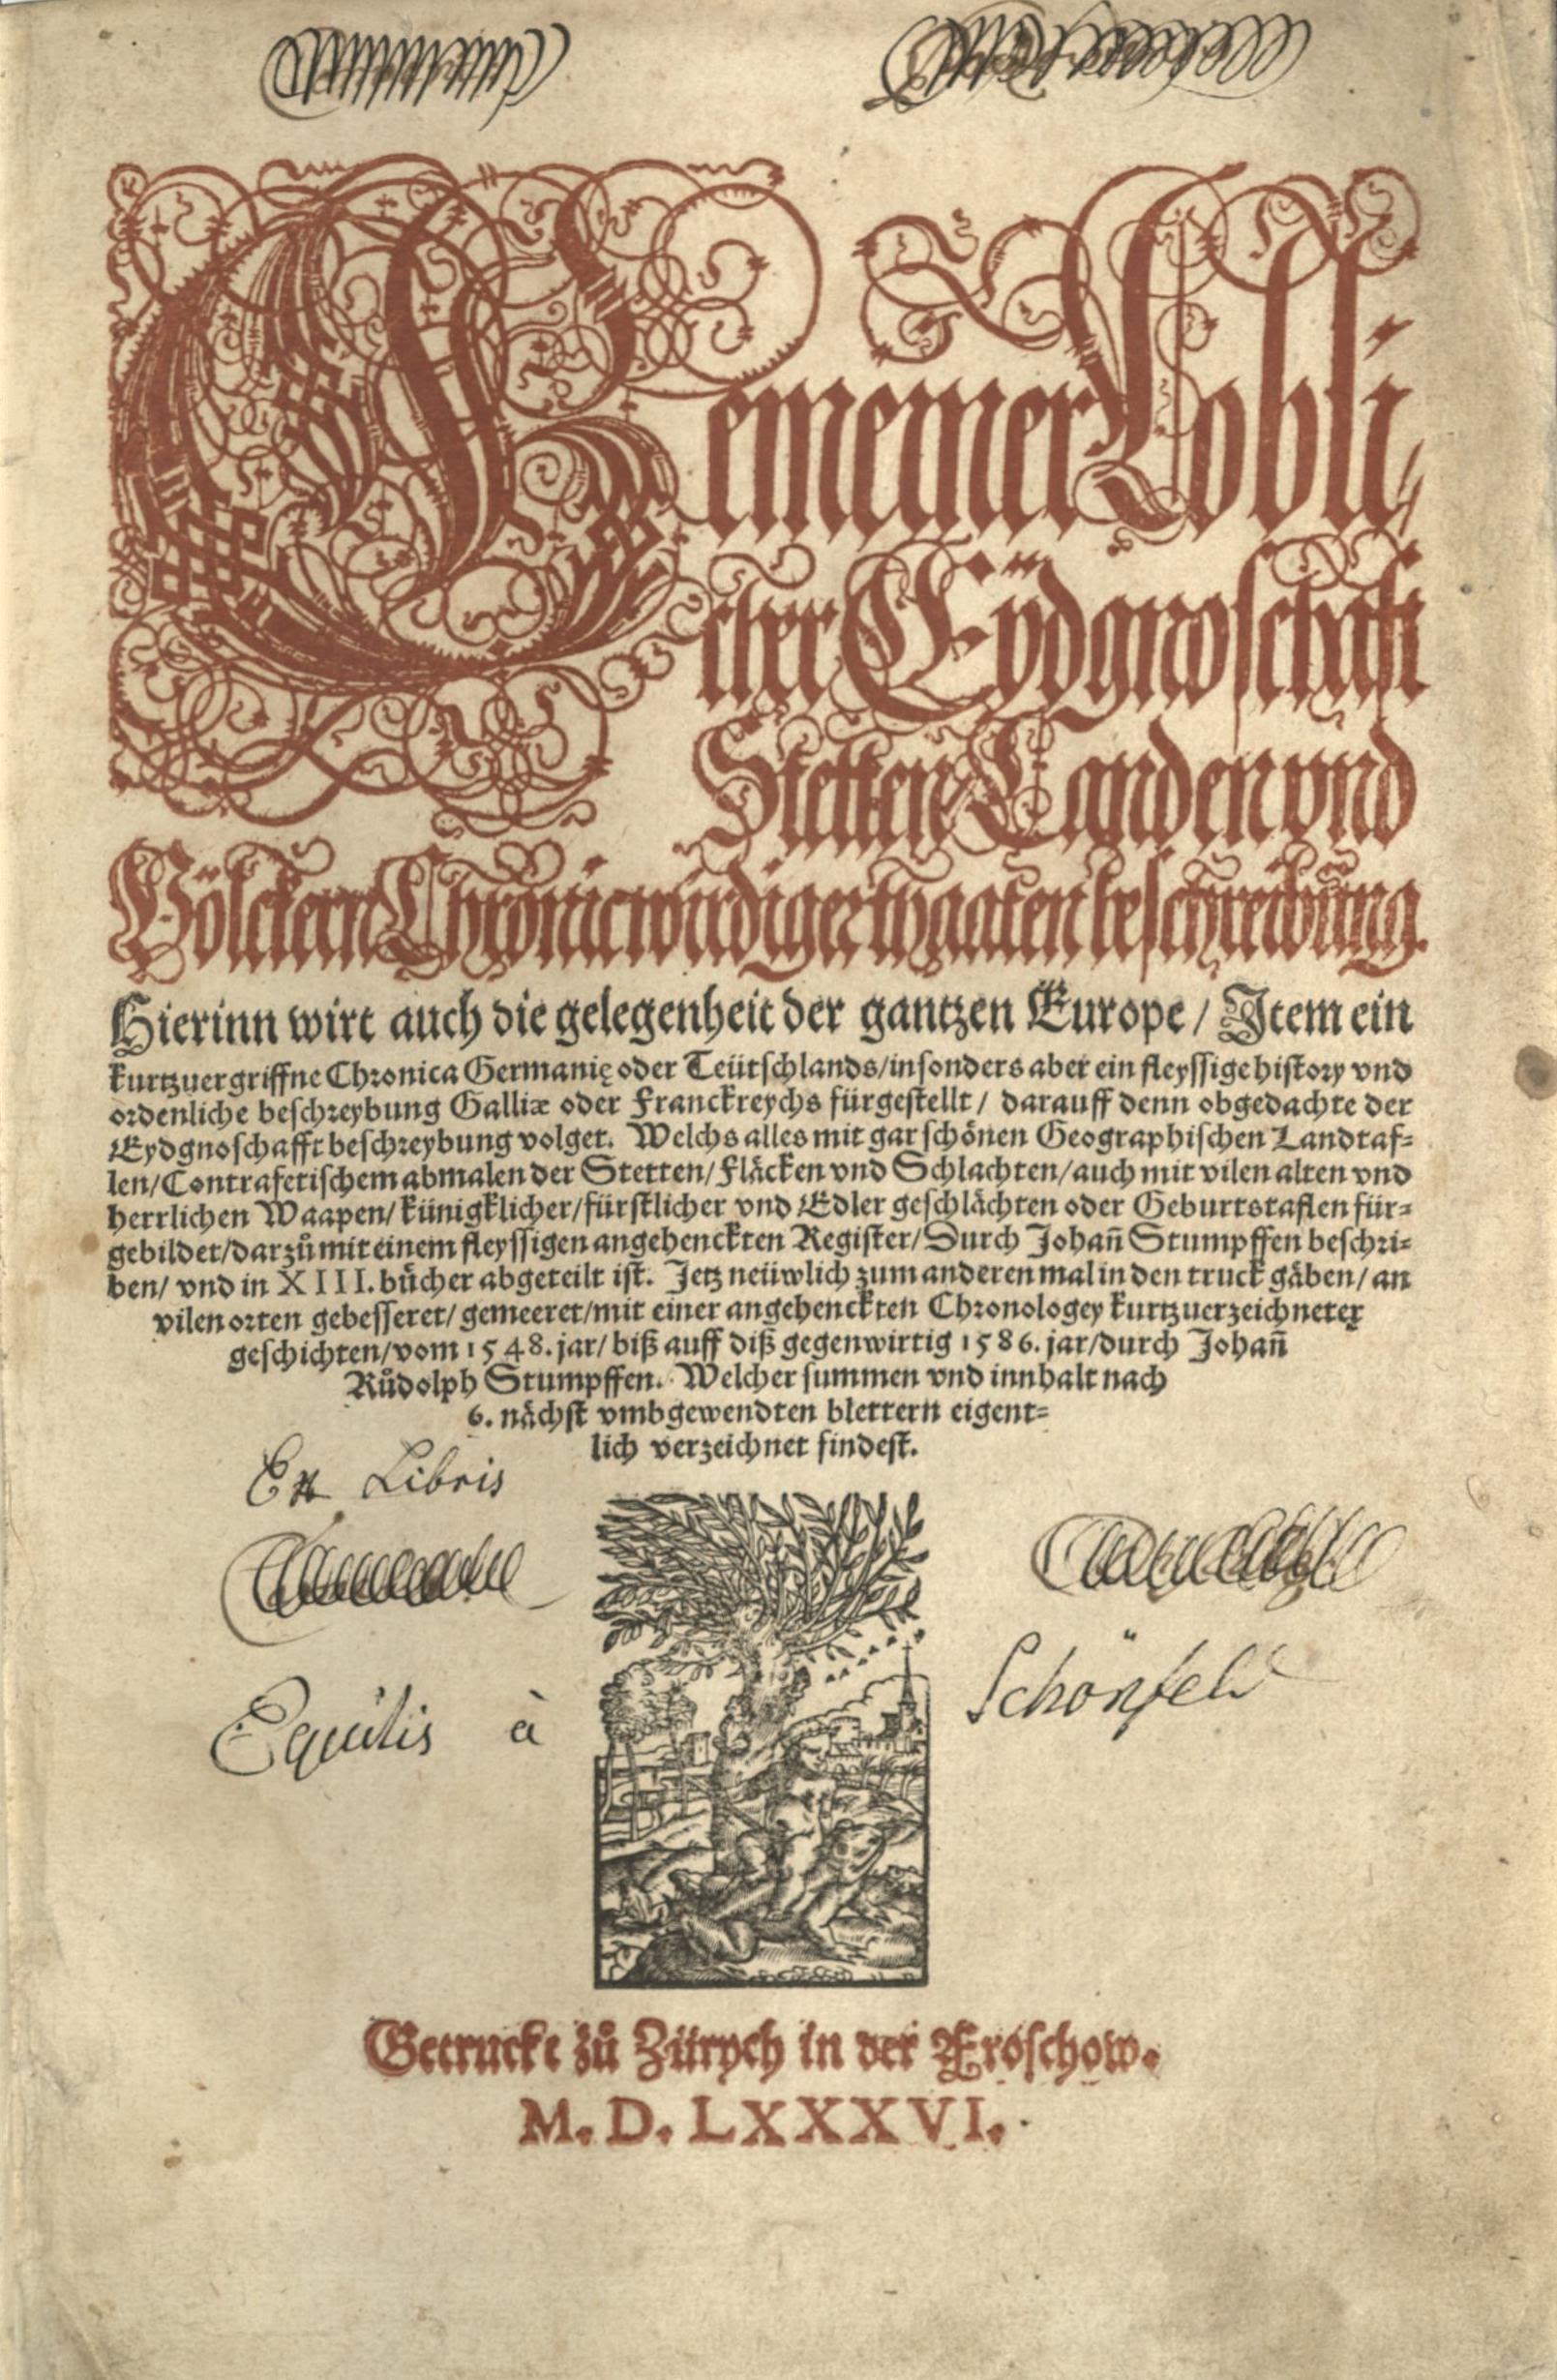 Gemeiner Lobli-
cher Eydgnoschafft
Stetten Landen vnd
Völckern Chronicwirdiger thaaten beschreibung.
Hierinn wirt auch die gelegenheit der gantzen Europe / Item ein
kurtzuergriffne Chronica Germanię oder Teütschlands/insonders aber ein fleyssige history vnd
ordenliche beschreybung Galliæ oder Franckreychs fürgestellt / darauff denn obgedachte der
Eydgnoschafft beschreybung volget. Welchs alles mit gar schönen Geographischen Landtaf-
len/Contrafetischem abmalen der Stetten/Fläcken vnd Schlachten/auch mit vilen alten vnd
herrlichen Waapen/künigklicher/fürstlicher vnd Edler geschlächten oder Geburtstaflen für-
gebildet/darzů mit einem fleyssigen angehenckten Register/Durch Johañ Stumpffen beschri-
ben/ vnd in XIII. bücher abgeteilt ist. Jetz neüwlich zum anderen mal in den truck gäben/ an
vilen orten gebesseret/ gemeeret/mit einer angehenckten Chronologey kurtzuerzeichneter
geschichten/vom 1548. jar/ biß auff diß gegenwirtig 1586. jar/durch Johañ
Růdolph Stumpffen. Welcher summen vnd innhalt nach
6. nächst vmbgewendten blettern eigent-
lich verzeichnet findest.
Ex Libris
Equitis à Schönfeld
Getruckt zů Zürych in der Froschow.
M. D. LXXXVI.